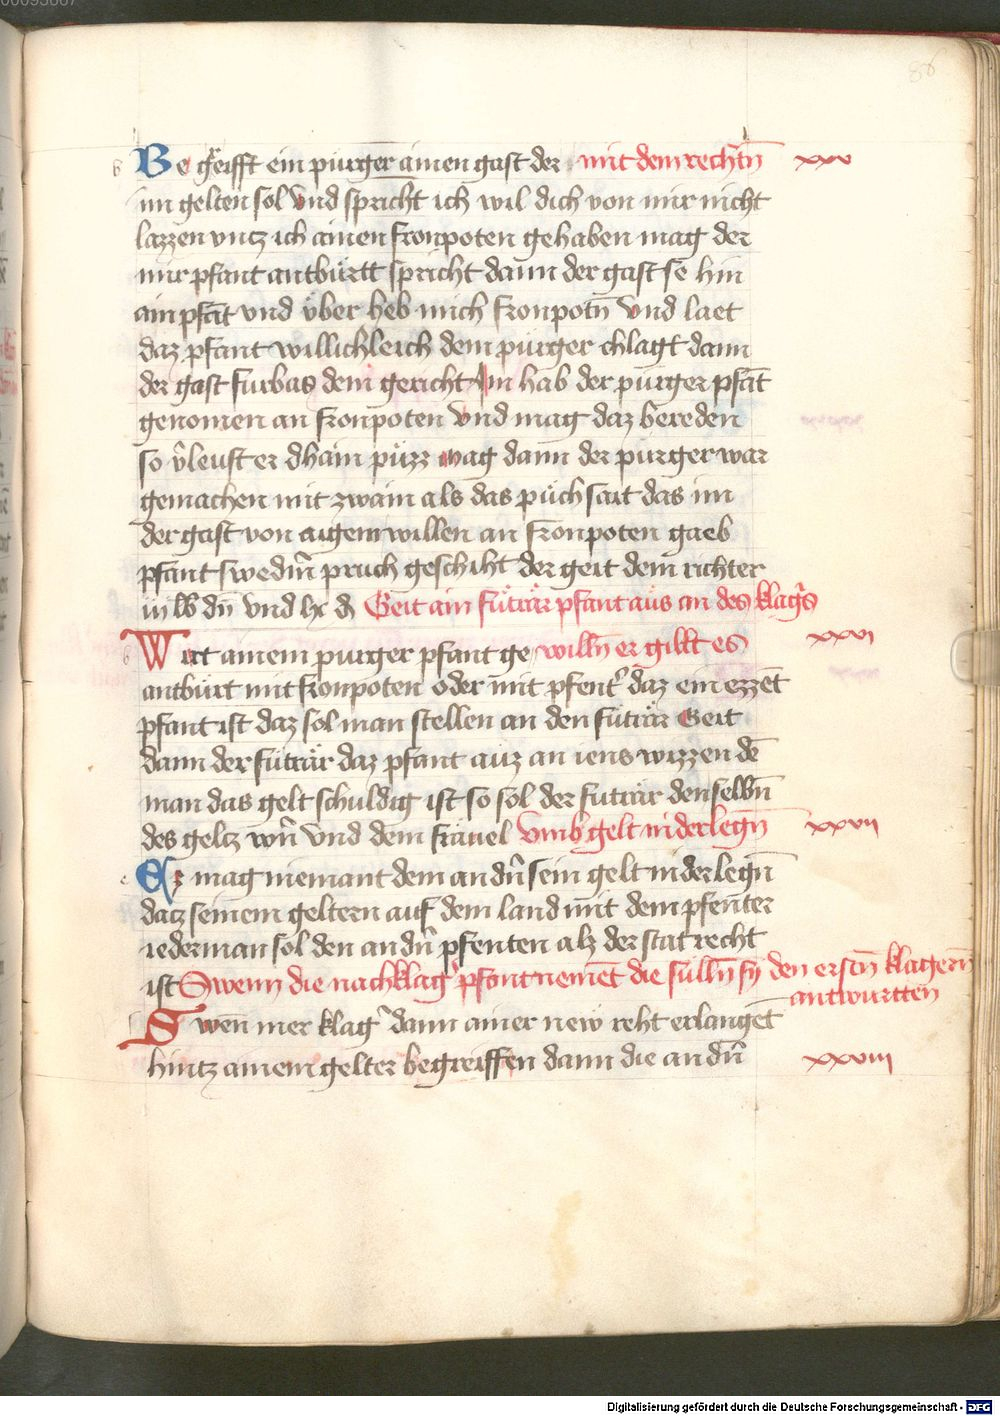 86
Begreifft ein purger ainen gast der mit dem rechtn̄ xxv
im gelten sol vnd spricht ich wil dich von mir nicht
lazzen vntz ich ainen fronpoten gehaben mag der
mir pfant antbůrtt spricht dann der gast se hin
ain pfāt vnd ůber heb mich fronpotn̄ vnd laet
daz pfant willichleich dem purger chlagt dann
der gast furbas dem gericht Im hab der purger pfāt
genomen an fronpoten vnd mag daz bereden
so v̓leust er dhain půzz mag dann der purger war
gemachen mit zwain als das půch sait das im
der gast von aigem willen an fronpoten gaeb
pfant swedm̄ pruch geschiht der geit dem richter
iii lb dn̄ vnd lx d Geit ain fůträr pfant aus an des klagr̄s
Wirt ainem purger pfant ge willn̄ er gillt es xxvi
antbůrt mit fronpoten oder mit pfent̓ daz ein ezzēt
pfant ist daz sol man stellen an den fůträr Geit
dann der fůträr daz pfant auz an iens wizzen dē
man das gelt schuldig ist so sol der futrär denselbn̄
des geltz wn̄ vnd dem fräuel Vmb gelt niderlegn̄ xxvii
Ez mag niemant dem andn̄ sein gelt niderlegn̄
datz seinem geltern auf dem land mit dem pfenter
iederman sol den andn̄ pfenten alz der stat recht
ist Swenn die nachklag̓ pfant nemēt die sulln̄ sy den erstn̄ klagern
antwurtten
Swen mer klag̓ dann ainer new reht erlangēt
hintz ainem gelter begreiffen dann die andn̄ xxviii
Digitalisierung gefördert durch die Deutsche Forschungsgemeinschaft - DFG